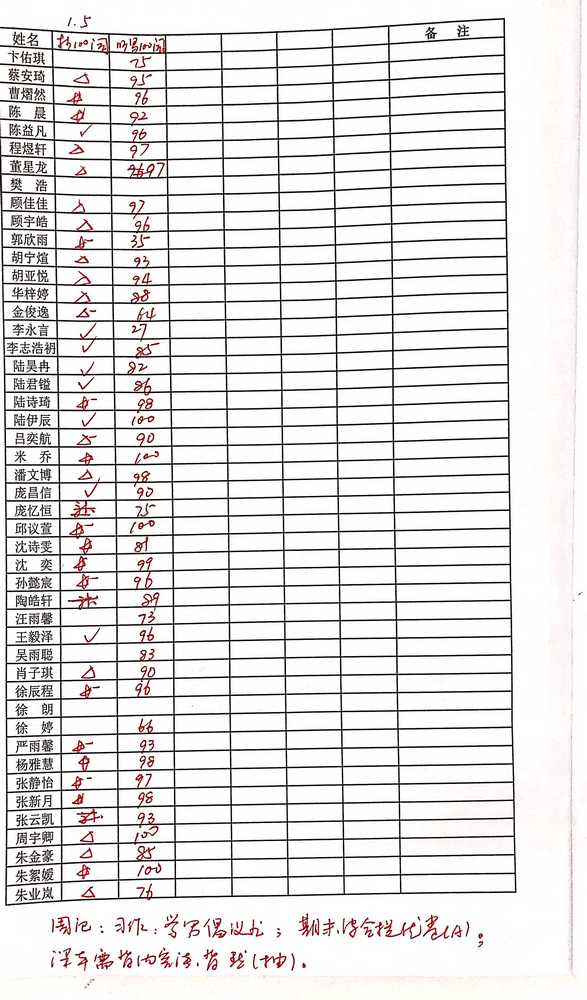 1.5
姓名 100词 默写100词 备 注
卞佑琪 75
蔡安琦 △ 95
曹熠然 96
陈 晨 92
陈益凡 ✓ 96
程煜轩 △ 97
董星龙 △ 97
樊 浩
顾佳佳 97
顾宇皓 96
郭欣雨 35
胡宁煊 △ 93
胡亚悦 94
华梓婷 88
金俊逸 64
李永言 ✓ 27
李志浩礽 ✓ 85
陆昊冉 ✓ 82
陆君镒 ✓ 86
陆诗琦 98
陆伊辰 ✓ 100
吕奕航 90
米 乔 100
潘文博 △ 98
庞昌信 ✓ 90
庞忆恒 75
邱议萱 100
沈诗雯 81
沈 奕 99
孙懿宸 96
陶皓轩 89
汪雨馨 73
王毅泽 ✓ 96
吴雨聪 83
肖子琪 △ 90
徐辰程 96
徐 朗
徐 婷 66
严雨馨 93
杨雅慧 98
张静怡 97
张新月 98
张云凯 93
周宇卿 △ 100
朱金豪 △ 85
朱絮媛 100
朱业岚 △ 76
周记:习作:学写倡议书; 期末综合提优卷(A)。